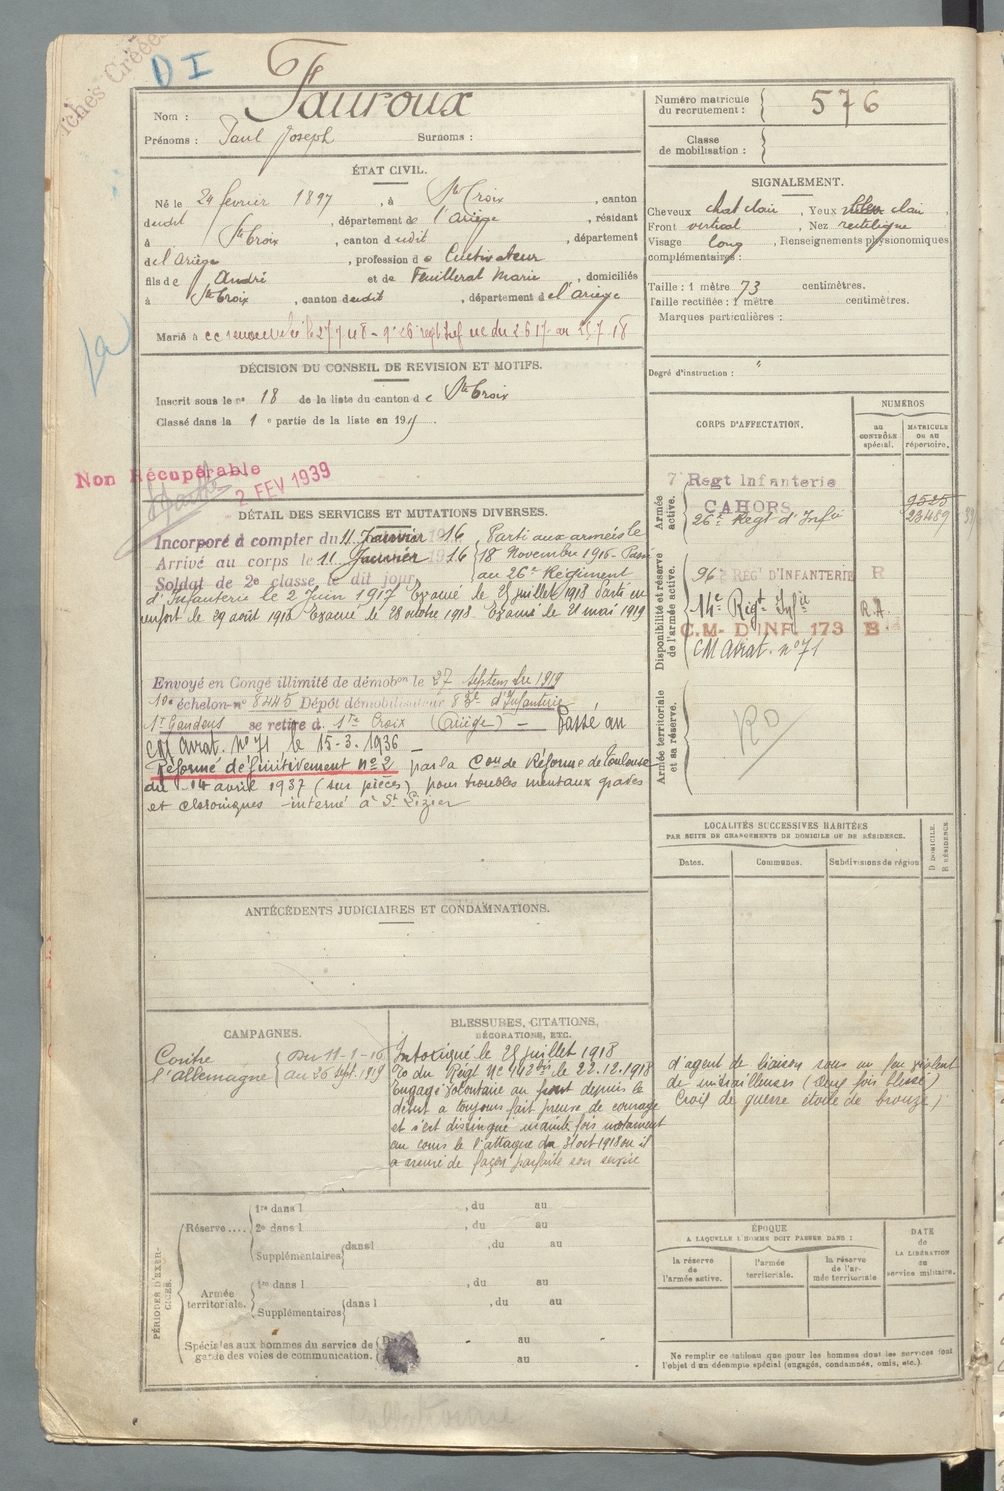 Fiches Créées
D I
Nom : Fauroux
Prénoms : Paul Joseph Surnoms :
Numéro matricule du recrutement : 576
Classe de mobilisation :
ÉTAT CIVIL.
Né le 24 février 1897, à Ste Croix, canton
dudit, département de l'Ariège, résidant
à Ste Croix, canton dudit, département
de l'Ariège, profession de Cultivateur
fils de André et de Feuillerat Marie, domiciliés
à Ste Croix, canton dudit, département de l'Ariège
Marié à
SIGNALEMENT.
Cheveux chat clair, Yeux bleu clair,
Front vertical, Nez rectiligne
Visage long, Renseignements physionomiques
complémentaires :
Taille : 1 mètre 73 centimètres.
Taille rectifiée : 1 mètre centimètres.
Marques particulières :
Degré d'instruction : "
DÉCISION DU CONSEIL DE REVISION ET MOTIFS.
Inscrit sous le no 18 de la liste du canton de Ste Croix
Classé dans la 1e partie de la liste en 191
Non Récupérable
2 FEV 1939
DÉTAIL DES SERVICES ET MUTATIONS DIVERSES.
Incorporé à compter du 11 Janvier 1916 Parti aux armées le
Arrivé au corps le 11 Janvier 1916 18 Novembre 1916 Passé
Soldat de 2e classe le dit jour au 26e Régiment
d'Infanterie le 2 Juin 1917 Evacué le 25 juillet 1918 Parti en
renfort le 29 août 1918 Evacué le 28 octobre 1918 Evacué le 21 mai 1919
Envoyé en Congé illimité de démobon le 27 Septembre 1919
10e échelon no 8445 Dépôt démobilisateur 83e d'Infanterie
St Gaudens se retire à Ste Croix (Ariège) — Passé au
CM Avrat. No 71, le 15-3. 1936 —
Réformé définitivement no 2 par la Con de Réforme de Toulouse
du 14 avril 1937 (sur pièces) pour troubles mentaux graves
et chroniques interné à St Lizier
CORPS D'AFFECTATION.
NUMÉROS
au CONTRÔLE spécial.
MATRICULE OU AU répertoire.
Armée active.
7e Regt Infanterie
CAHORS
9525
26e Regt d'Infie 23489
Disponibilité et réserve de l'armée active.
96e RÉGt D'INFANTERIE R
14e Régt Infie R.A.
C.M- D'INF. 173 B
CM Avrat. no 71
Armée territoriale et sa réserve.
RD
LOCALITÉS SUCCESSIVES HABITÉES
PAR SUITE DE CHANGEMENTS DE DOMICILE OU DE RÉSIDENCE.
Dates. Communes. Subdivisions de région
D DOMICILE.
R RÉSIDENCE
ANTÉCÉDENTS JUDICIAIRES ET CONDAMNATIONS.
CAMPAGNES.
Contre l'allemagne
du 11-1-16
au 26 Sept. 1919
BLESSURES, CITATIONS,
DÉCORATIONS, ETC.
Intoxiqué le 25 juillet 1918
O du Régt No 142 bis le 22.12.1918
Engagé volontaire au front depuis le
début a toujours fait preuve de courage
et s'est distingué mainte fois notament
au cours de l'attaque du 31 oct 1918 où il
a assuré de façon parfaite son service
d'agent de liaison sous un feu violent
de mitrailleuses (Deux fois blessé)
Croix de guerre étoile de bronze,
PÉRIODES D'EXERCICES.
Réserve....
1re dans l , du au
2e dans l , du au
Supplémentaires dans l , du au
Armée territoriale.
1re dans l , du au
Supplémentaires dans l , du au
Spéciales aux hommes du service de
garde des voies de communication.
au
au
ÉPOQUE
A LAQUELLE L'HOMME DOIT PASSER DANS :
la réserve de l'armée active.
l'armée territoriale.
la réserve de l'armée territoriale
DATE de LA LIBÉRATION du service militaire.
Ne remplir ce tableau que pour les hommes dont les services font
l'objet d'un décompte spécial (engagés, condamnés, omis, etc.).